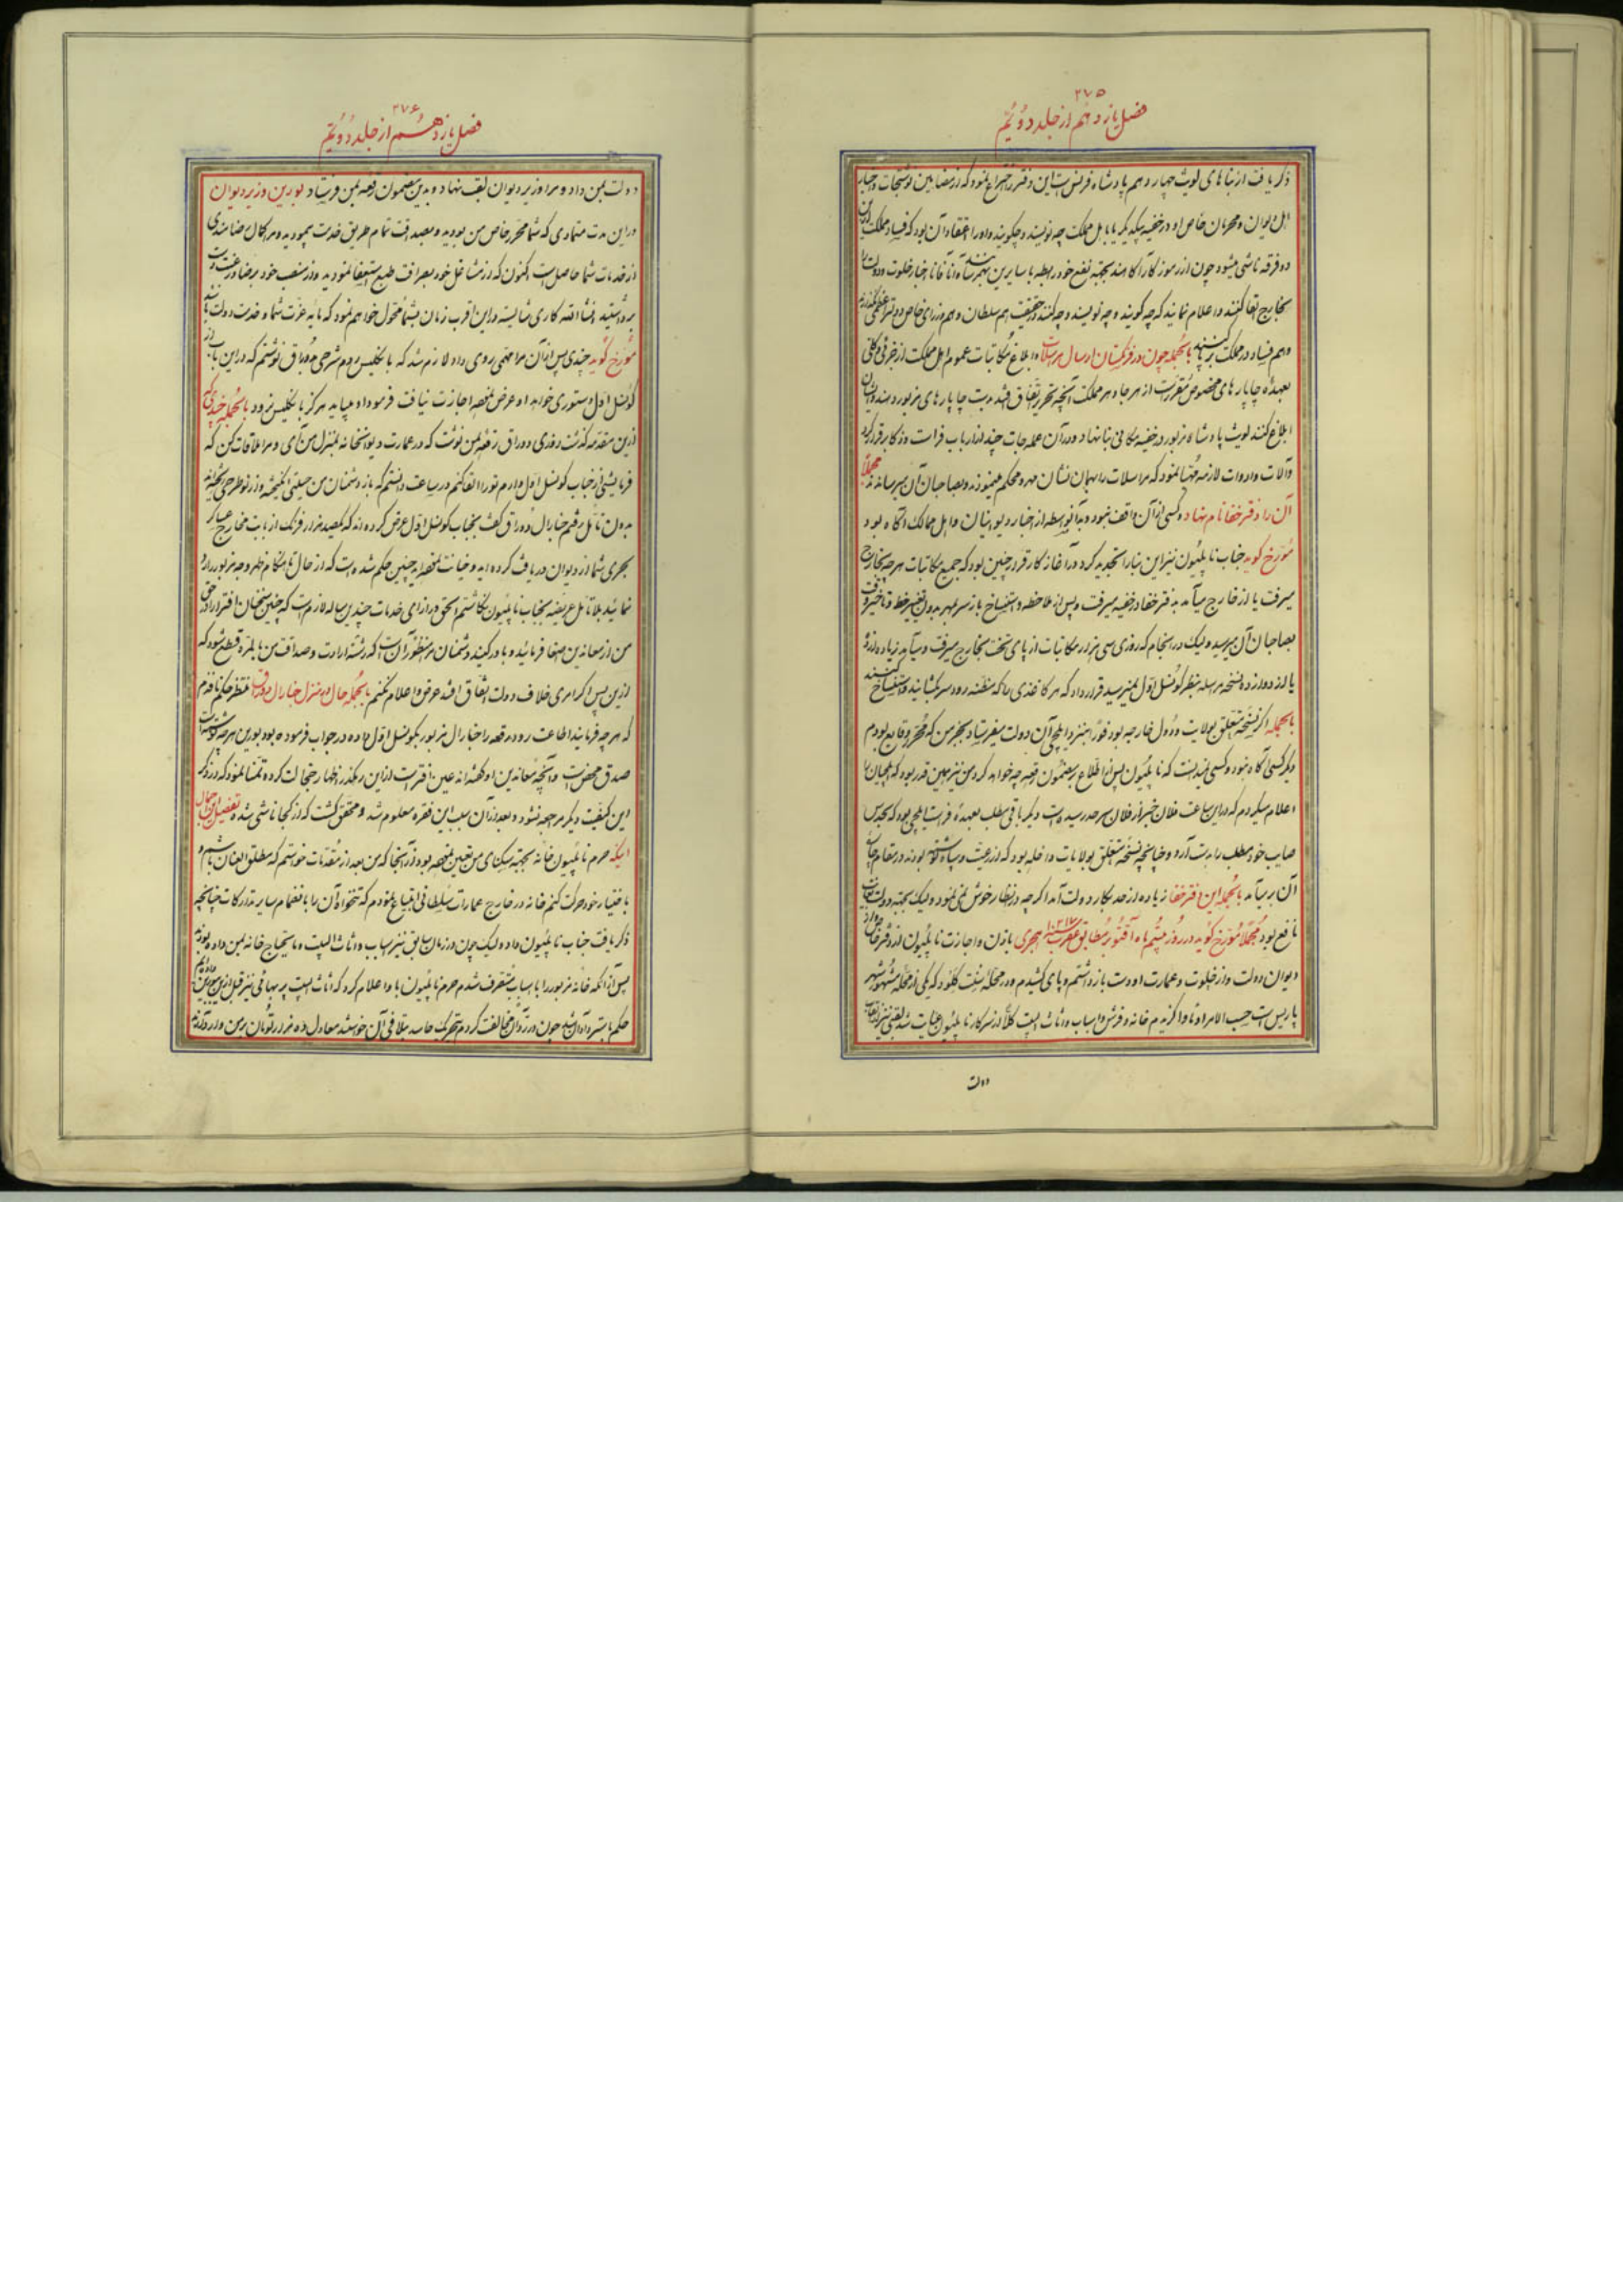 ۲۷۵
فصل یازدهم از جلد دویم
ذکر یافت از بناهای لویث چهاردهم پادشاه فرنس است این دفتر را اختراع نمود که از مضامین نوشتجات و اخبار
اهل دیوان و محرمان خاص او در خفیه بیکدیگر یا باهل مملکت چه نویسند و چگویند و او را اعتقاد آن بود که فساد مملکت ازین
دو فرقه ناشی میشود چون از رموز کار آگاهند بجهته نفع خود رابطه با سایرین بهم رسانند آناً فآناً اخبار خلوت و دولت را
بخارج القا کنند و اعلام نمایند که چه گویند و چه نویسند و چه کنند در حقیقت هم سلطان و هم وزرای خاص
و هم فساد در مملکت برپا کنند بالجمله چون در فرنگستان ارسال مرسلات و ابلاغ مکاتبات عموم اهل مملکت از جزئی و کلی
بعهدهٔ چاپارهای مخصوص مقرر است از هر جا و هر مملکت آنچه تحریر اتفاق افتد بدست چاپارهای مزبور دهند و ایشان
ابلاغ کنند لویث پادشاه مزبور در خفیه مکانی بنا نهاد و در آن عمله‌جات چند از ارباب فراست و ذکا برقرار کرد
و آلات و ادوات لازمه مهیا نمود که مراسلات را بهمان نشان مهر و محکم مینمودند و بصاحبان آن میرسانند مجملاً
آن را دفتر خفا نام نهاد و کسی از آن واقف نبود و بدانواسطه از اخبار دیوانیان و اهل ممالک آگاه بود
مورخ گوید جناب ناپلیون نیز این بنا را تجدید کرد در آغاز کار قرار چنین بود که جمیع مکاتبات هر چه بخارج
میرفت یا از خارج میآمد بدفتر خفا در خفیه میرفت و پس از ملاحظه و استنساخ باز سر بمهر بدون تغییر خط و تاخیر وقت
بصاحبان آن میرسید و لیک در انجام که روزی سی هزار مکاتبات از پای تخت بخارج میرفت و میآمد زیاده از ده
یا از دوازده نسخه مراسله بنظر کونسل اول نمیرسید قرار داد که هر کاغذی را که مظنه رود سر بگشایند و استنساخ کنند
بالجمله اگر نسخه متعلق بولایت و دول خارجه بود فوراً بنزد ایلچی آن دولت میفرستاد بجز من که محرر وقایع بودم
دیگر کسی آگاه نبود و کسی نمیدانست که ناپلیون پس از اطلاع بر مضمون رقعه چه خواهد کرد من نیز همین قدر بود که ایلچیان را
اعلام میکردم که در این ساعت فلان خبر از فلان سرحد رسیده است دیگر باقی مطلب بعهدهٔ فراست ایلچی بود که بحدس
صایب خود مطلب را بدست آرد و چنانچه نسخه متعلق بولایات داخله بود که از رعیت و سپاه نوشته بودند در مقام
آن بر میآمد بالجمله این دفتر خفا زیاده از حد بکار دولت آمد اگر چه در انظار خوش نمی‌نمود و لیک بجهته دولت بغایت
نافع بود مجملاً مورخ گوید در روز بیستم ماه آقتوبر مطابق هجری باذن و اجازت ناپلیون از دفتر خاص و از
دیوان دولت و از خلوت و عمارت او دست باز داشتم و پای کشیدم و در محلهٔ سنت کلود که یکی از محلهٔ مشهور شهر
پاریس است حسب الامر او ماوا گزیدم خانه و فرش و اسباب و اثاث البیت کلاً از سرکار ناپلیون عنایت شد
دولت
۲۷۶
فصل یازدهم از جلد دویم
دولت بمن داد و مرا وزیر دیوان لقب نهاد و بدین مضمون رقعه بمن فرستاد بورین وزیر دیوان
در این مدت متمادی که شما محرر خاص من بودید و بصداقت تمام طریق خدمت پیمودید و مرا کمال رضامندی
از خدمات شما حاصل است اکنون که از مشاغل خود بصرافت طبع استعفا نمودید و از منصب خود برضا و رغبت دست
برداشتید انشاءالله کاری شایسته در این اقرب زمان بشما محول خواهم نمود که مایه عزت شما و خدمت دولت باشد
مورخ گوید چندی پس از آن مرا مهمی روی داد لازم شد که بانگلیس روم شرحی بدوراق نوشتم که در این باب از
کونسل اول دستوری خواهد او عرض نمود اجازت نیافت فرمود او میباید هرگز بانگلیس نرود بالجمله چندی که
ازین مقدمه گذشت روزی دوراق رقعه بمن نوشت که در عمارت دیوانخانه بمنزل من آی و مرا ملاقات کن که
فرمایشی از جناب کونسل اول دارم تو را القا کنم در ساعت دانستم که باز دشمنان من حیلتی انگیخته و از نو طرحی ریخته‌اند
بدون تأمل رفتم جنارال دوراق گفت بجناب کونسل اول عرض کرده‌اند که یکصد هزار فرنگ از بابت مخارج عساکر
بحری شما از دیوان دریافت کرده‌اید و خیانت نموده‌اید چنین حکم شده است که از حال تا هنگام ظهر وجه مزبور را رد
نمائید بلا تأمل عریضه بجناب ناپلیون نگاشتم الحق در ازای خدمات چندین ساله لازم است که چنین سخنان افترا را در حق
من از معاندین اصغا فرمائید و باور کنید دشمنان مرا منظور آن است که رشته ارادت و صداقت من بالمره قطع شود که
ازین پس اگر امری خلاف دولت اتفاق افتد عرض و اعلام نکنم بالجمله حال در منزل جنارال دوراق منتظر حکم نافذم
که هر چه فرمایند اطاعت رود رقعه را جنارال مزبور بکونسل اول داده در جواب فرموده بود بورین هر چه نوشته است
صدق محض است و آنچه معاندین او گفته‌اند عین افترا است ازین رهگذر اظهار خجالت کرده تمنا نمود که در ذکر
این کیفیت دیگر مرجعه نشود و بعد از آن سبب این فقره معلوم شد و محقق گشت که از کجا ناشی شده تفصیل این اجمال
اینکه حرم ناپلیون خانه بجهته سکنای من تعیین نموده بود از آنجا که من بعد از مقدمات خواستم که مطلق العنان باشم و
باختیار خود حرکت کنم خانه در خارج عمارات سلطانی ابتیاع نمودم که تنخواه آن را بانضمام سایر تدارکات چنانچه
ذکر یافت جناب ناپلیون داده و لیک چون در زمان سابق نیز اسباب و اثاث البیت و مایحتاج خانه بمن داده بودند
پس از آنکه خانه مزبور را با اسباب متصرف شدم حرم ناپلیون با ما اعلام کرد که اثاث البیت پر بهائی نیز قبل ازین
حکم باسترداد آن شد چون در رد آن مخالفت کردم بتحریک حاسد بتلافی آن خواستند معادل ده هزار تومان بر من وارد آورند